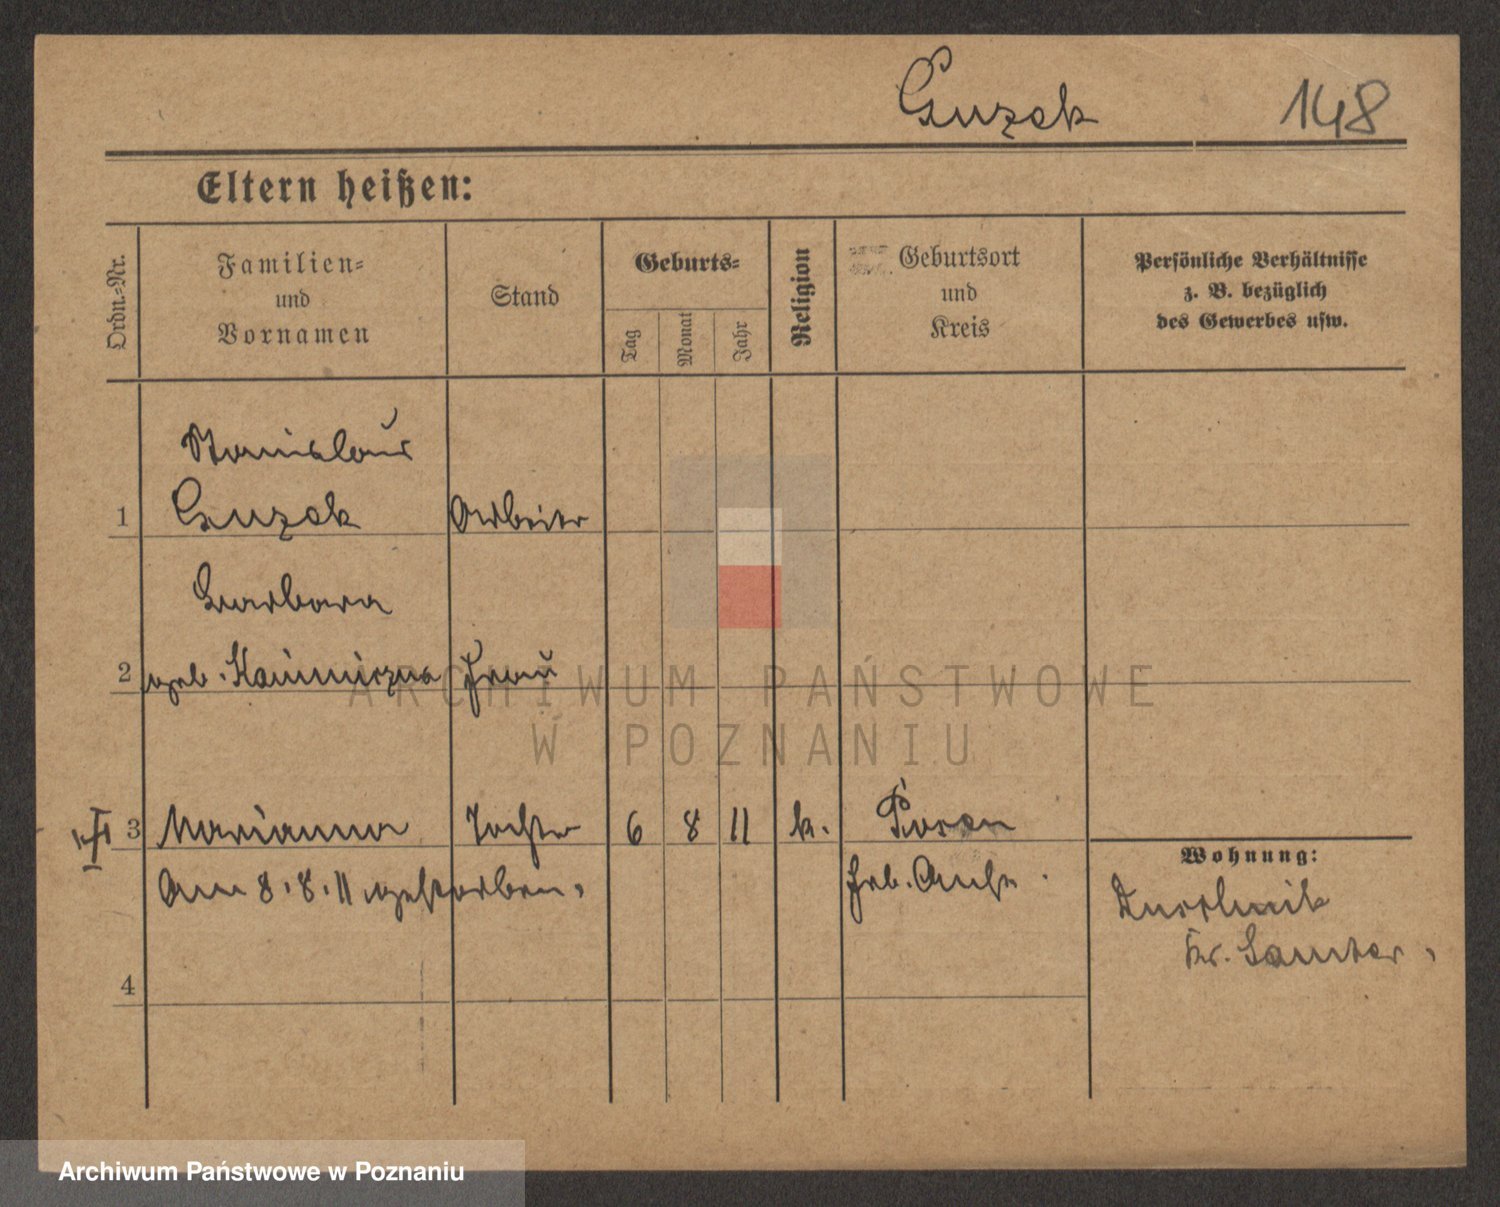 Guzek 148
Eltern heißen:
Ordn.-Nr.
Familien-
und
Vornamen
Stand
Geburts-
Tag
Monat
Jahr
Religion
Geburtsort
und
Kreis
Persönliche Verhältnisse
z. B. bezüglich
des Gewerbes usw.
Stanislaus
1 Guzek Arbeiter
Barbara
2 geb. Frau
3 Marianna Tochter 6 8 11 k. Posen
Am 8.8.11 gestorben. Geb. Anst.
Wohnung:
Kr. Samter.
4
ARCHIWUM PAŃSTWOWE
W POZNANIU
Archiwum Państwowe w Poznaniu